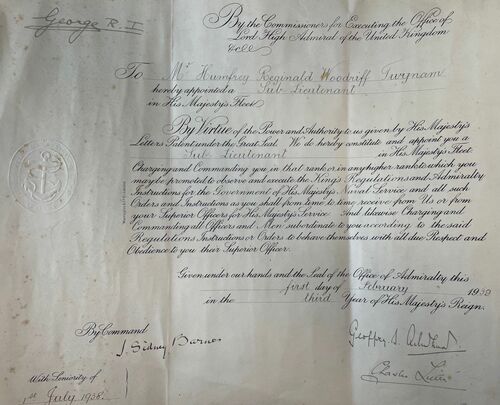 George R. I
By the Commissioners for Executing the Office of
Lord High Admiral of the United Kingdom
&c &c &c
To Mr. Humfrey Reginald Woodriff Twynam
hereby appointed a Sub Lieutenant
in His Majesty's Fleet
By Virtue of the Power and Authority to us given by His Majesty's
Letters Patent under the Great Seal We do hereby constitute and appoint you a
Sub Lieutenant in His Majesty's Fleet
Charging and Commanding you in that rank or in any higher rank to which you
may be promoted to observe and execute the King's Regulations and Admiralty
Instructions for the Government of His Majesty's Naval Service and all such
Orders and Instructions as you shall from time to time receive from Us or from
your Superior Officers for His Majesty's Service And likewise Charging and
Commanding all Officers and Men subordinate to you according to the said
Regulations Instructions or Orders to behave themselves with all due Respect and
Obedience to you their Superior Officer.
Given under our hands and the Seal of the Office of Admiralty this
first day of February 1939
in the third Year of His Majesty's Reign.
By Command
J. Sidney Barnes
Geoffrey
Charles
With Seniority of
1st July 1938.